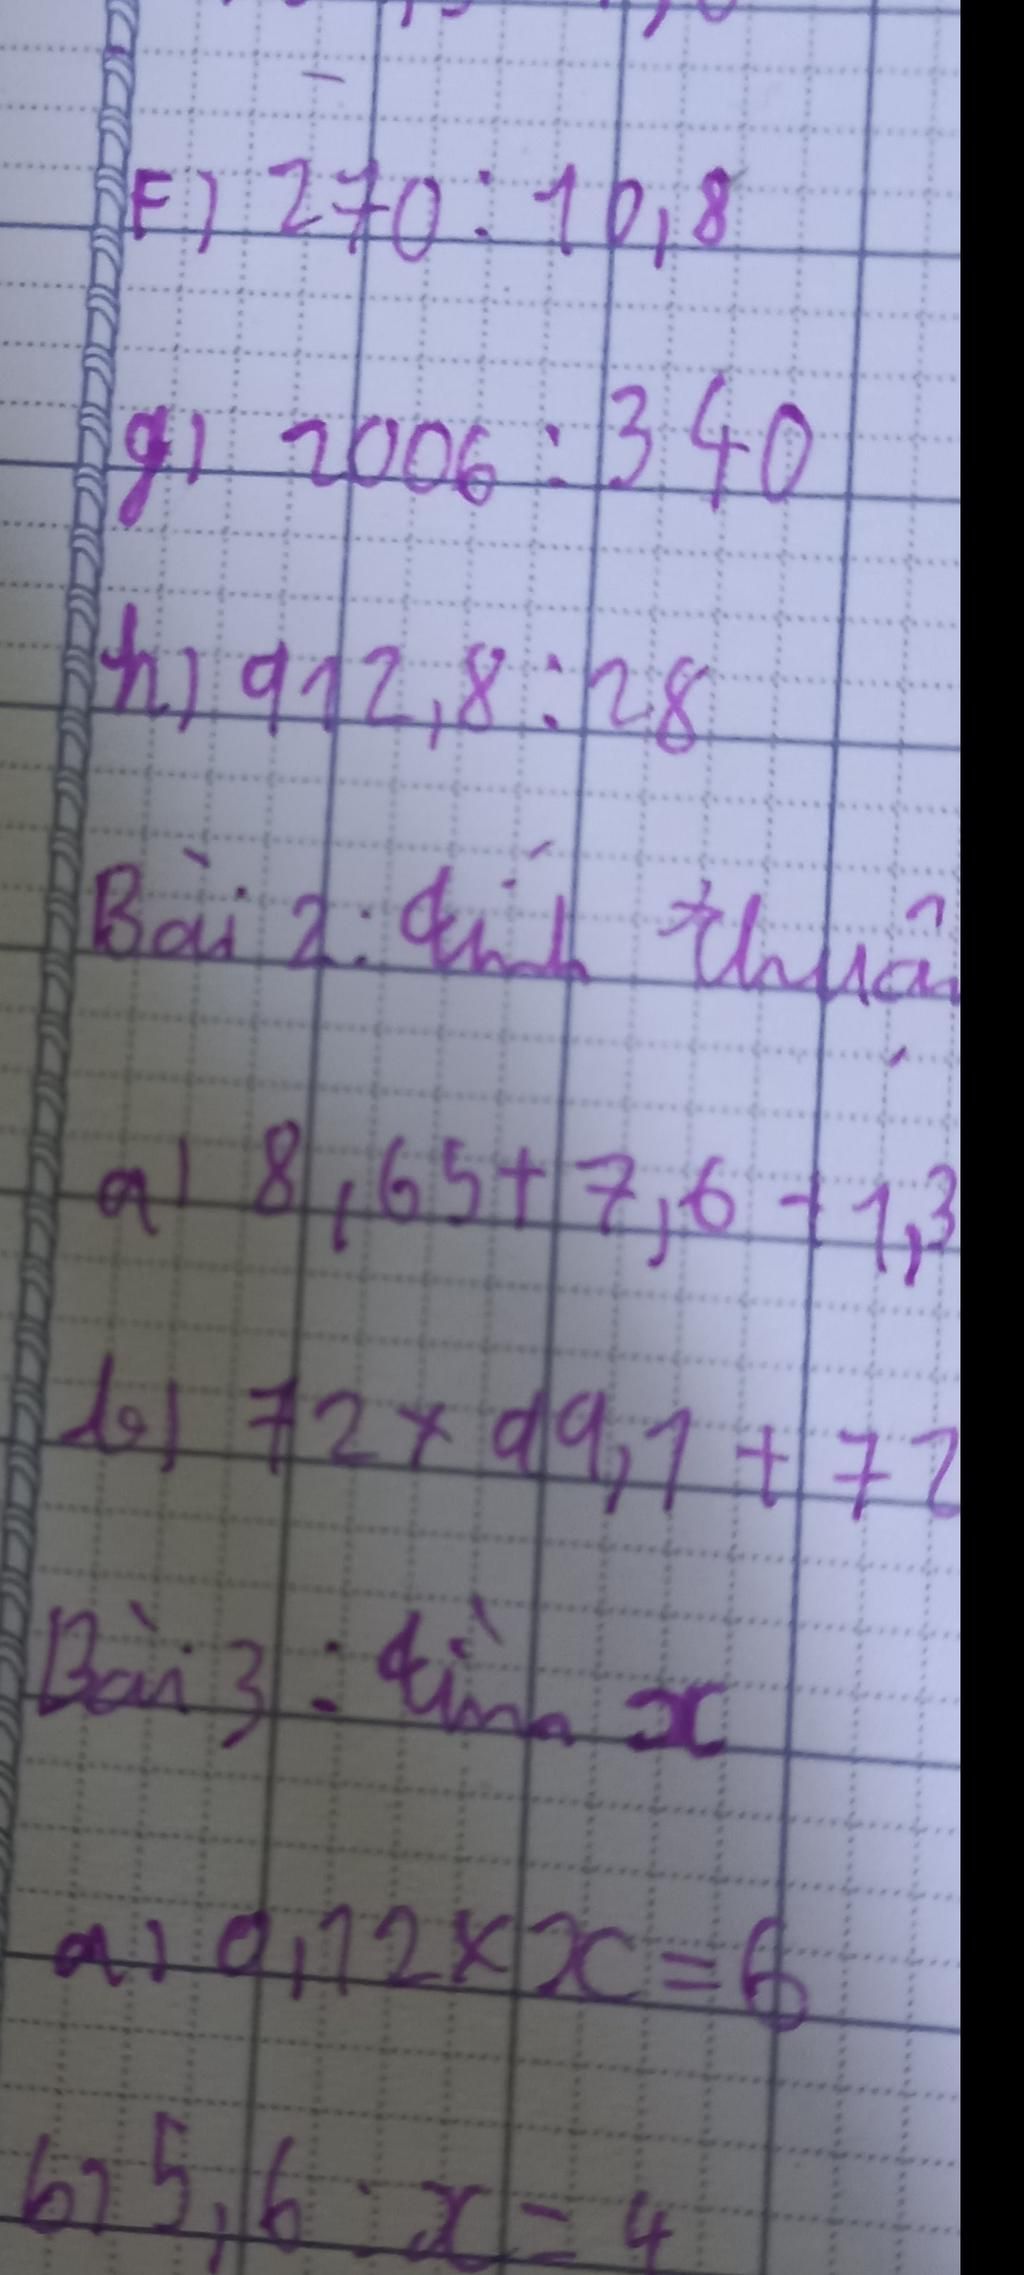 F) 270 : 10,8
g) 2006 : 340
h) 912,8 : 28
Bài 2: tính
a) 8,65 + 7,6 + 1,3
b) 72 x 99,1 + 72
Bài 3: tìm x
a) 0,12 x x = 6
b) 5,6 : x = 4